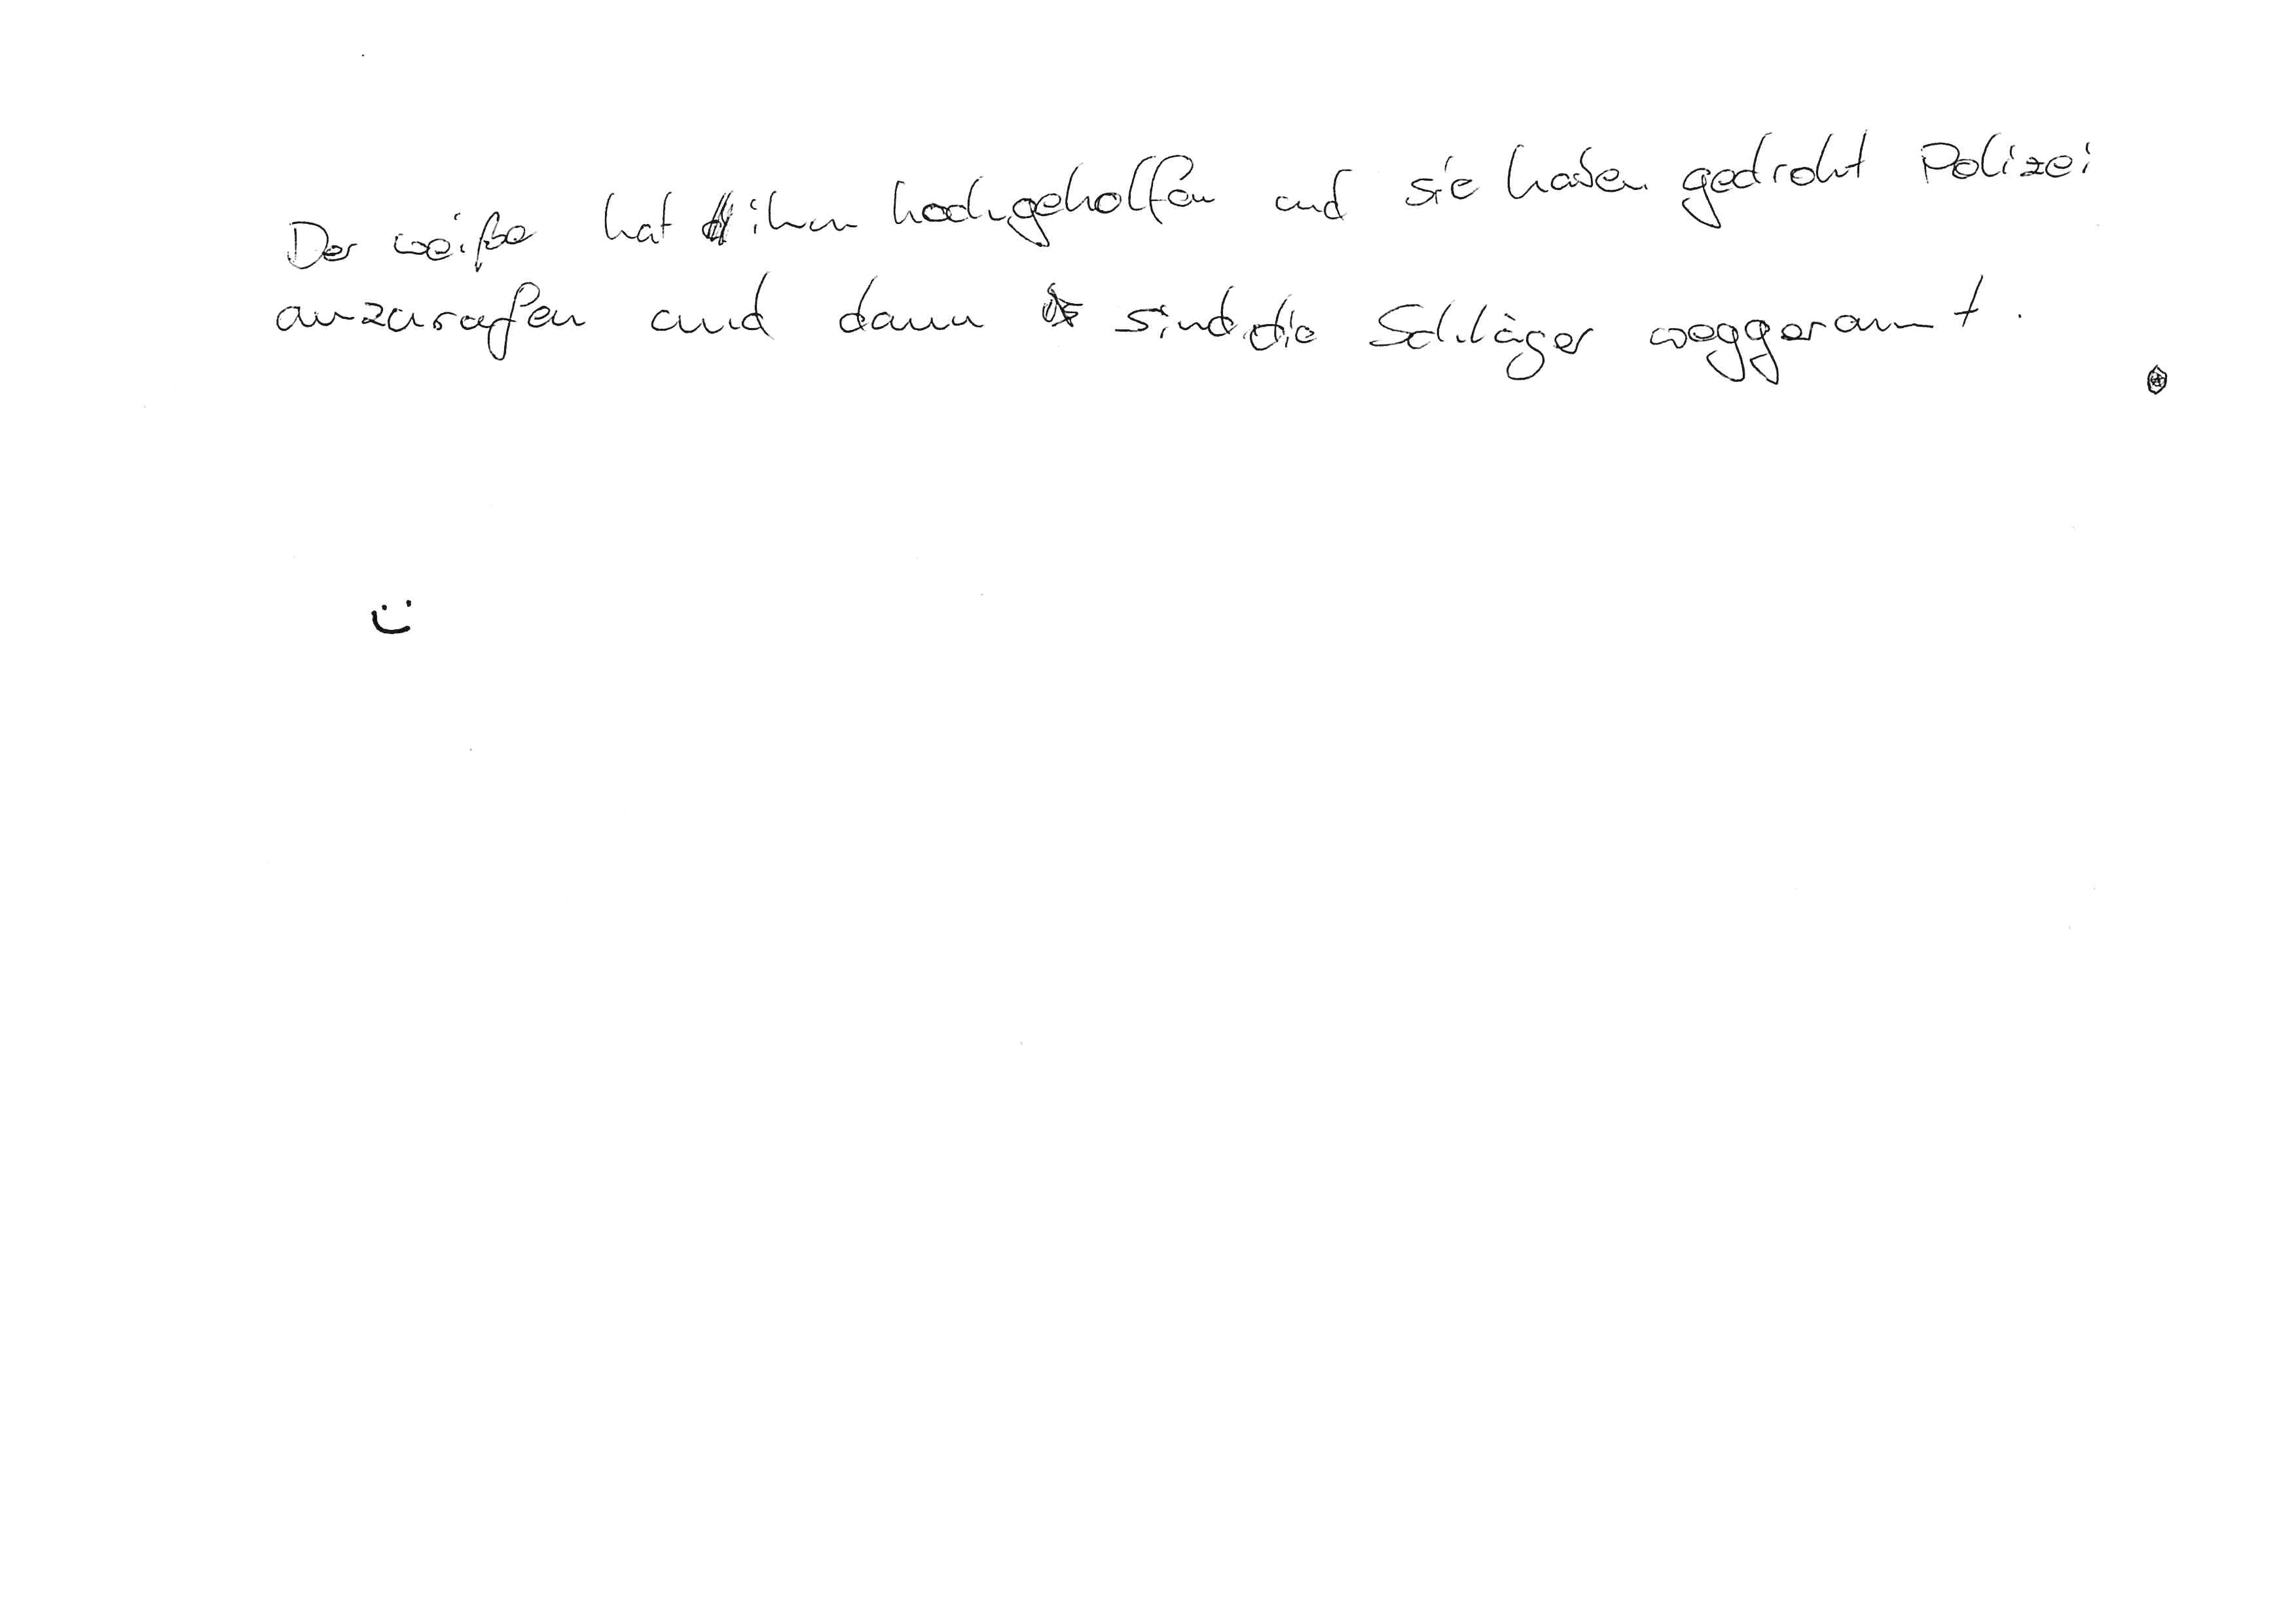 Der weiße hat ihm hochgeholfen und sie haben gedroht Polizei
anzurufen und dann sind die Schläger weggerannt.